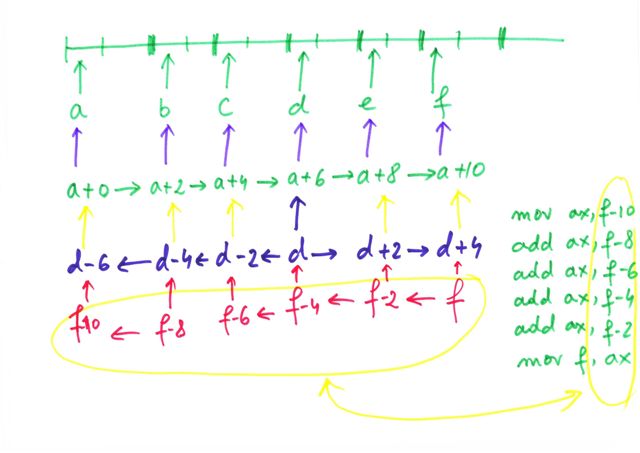 a b c d e f
a+0 → a+2 → a+4 → a+6 → a+8 → a+10
d-6 ← d-4 ← d-2 ← d → d+2 → d+4
f-10 ← f-8 f-6 ← f-4 ← f-2 ← f
mov ax, f-10
add ax, f-8
add ax, f-6
add ax, f-4
add ax, f-2
mov f, ax